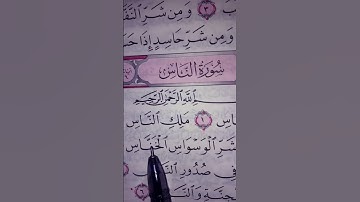 ٣ وَمِن شَرِّ ٱلنَّفَّـ
وَمِن شَرِّ حَاسِدٍ إِذَا حَسَـ
سُورَةُ ٱلنَّاسِ
ٱللَّهِ ٱلرَّحْمَٰنِ ٱلرَّحِيمِ
ـاسِ ١ مَلِكِ ٱلنَّاسِ
شَرِّ ٱلْوَسْوَاسِ ٱلْخَنَّاسِ
فِي صُدُورِ ٱلنَّـ
ـجِنَّةِ وَٱلنَّـ ٦